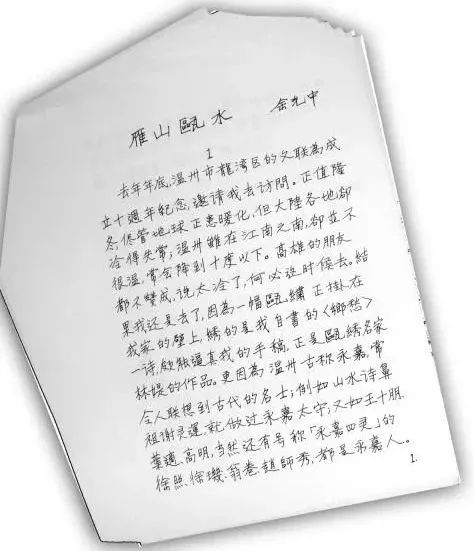 雁山甌水 余光中
1
去年年底,温州市龍湾区的文联為成
立十週年紀念,邀請我去訪問。正值隆
冬,儘管地球正患暖化,但大陸各地卻
冷得失常;温州雖在江南之南,卻並不
很温,常会降到十度以下。高雄的朋友
都不贊成,说太冷了,何必这时候去。結
果我还是去了,因為一幅甌繡正掛在
我家的壁上,綉的是我自書的〈鄉愁〉
一诗,頗能逼真我的手稿,正是甌綉名家
林媞的作品。更因為温州古称永嘉,常
令人联想到古代的名士;例如山水诗鼻
祖謝灵運,就做过永嘉太守;又如王十朋,
葉適,高明,当然还有号称「永嘉四灵」的
徐照,徐璣,翁卷,趙師秀,都是永嘉人。
1.